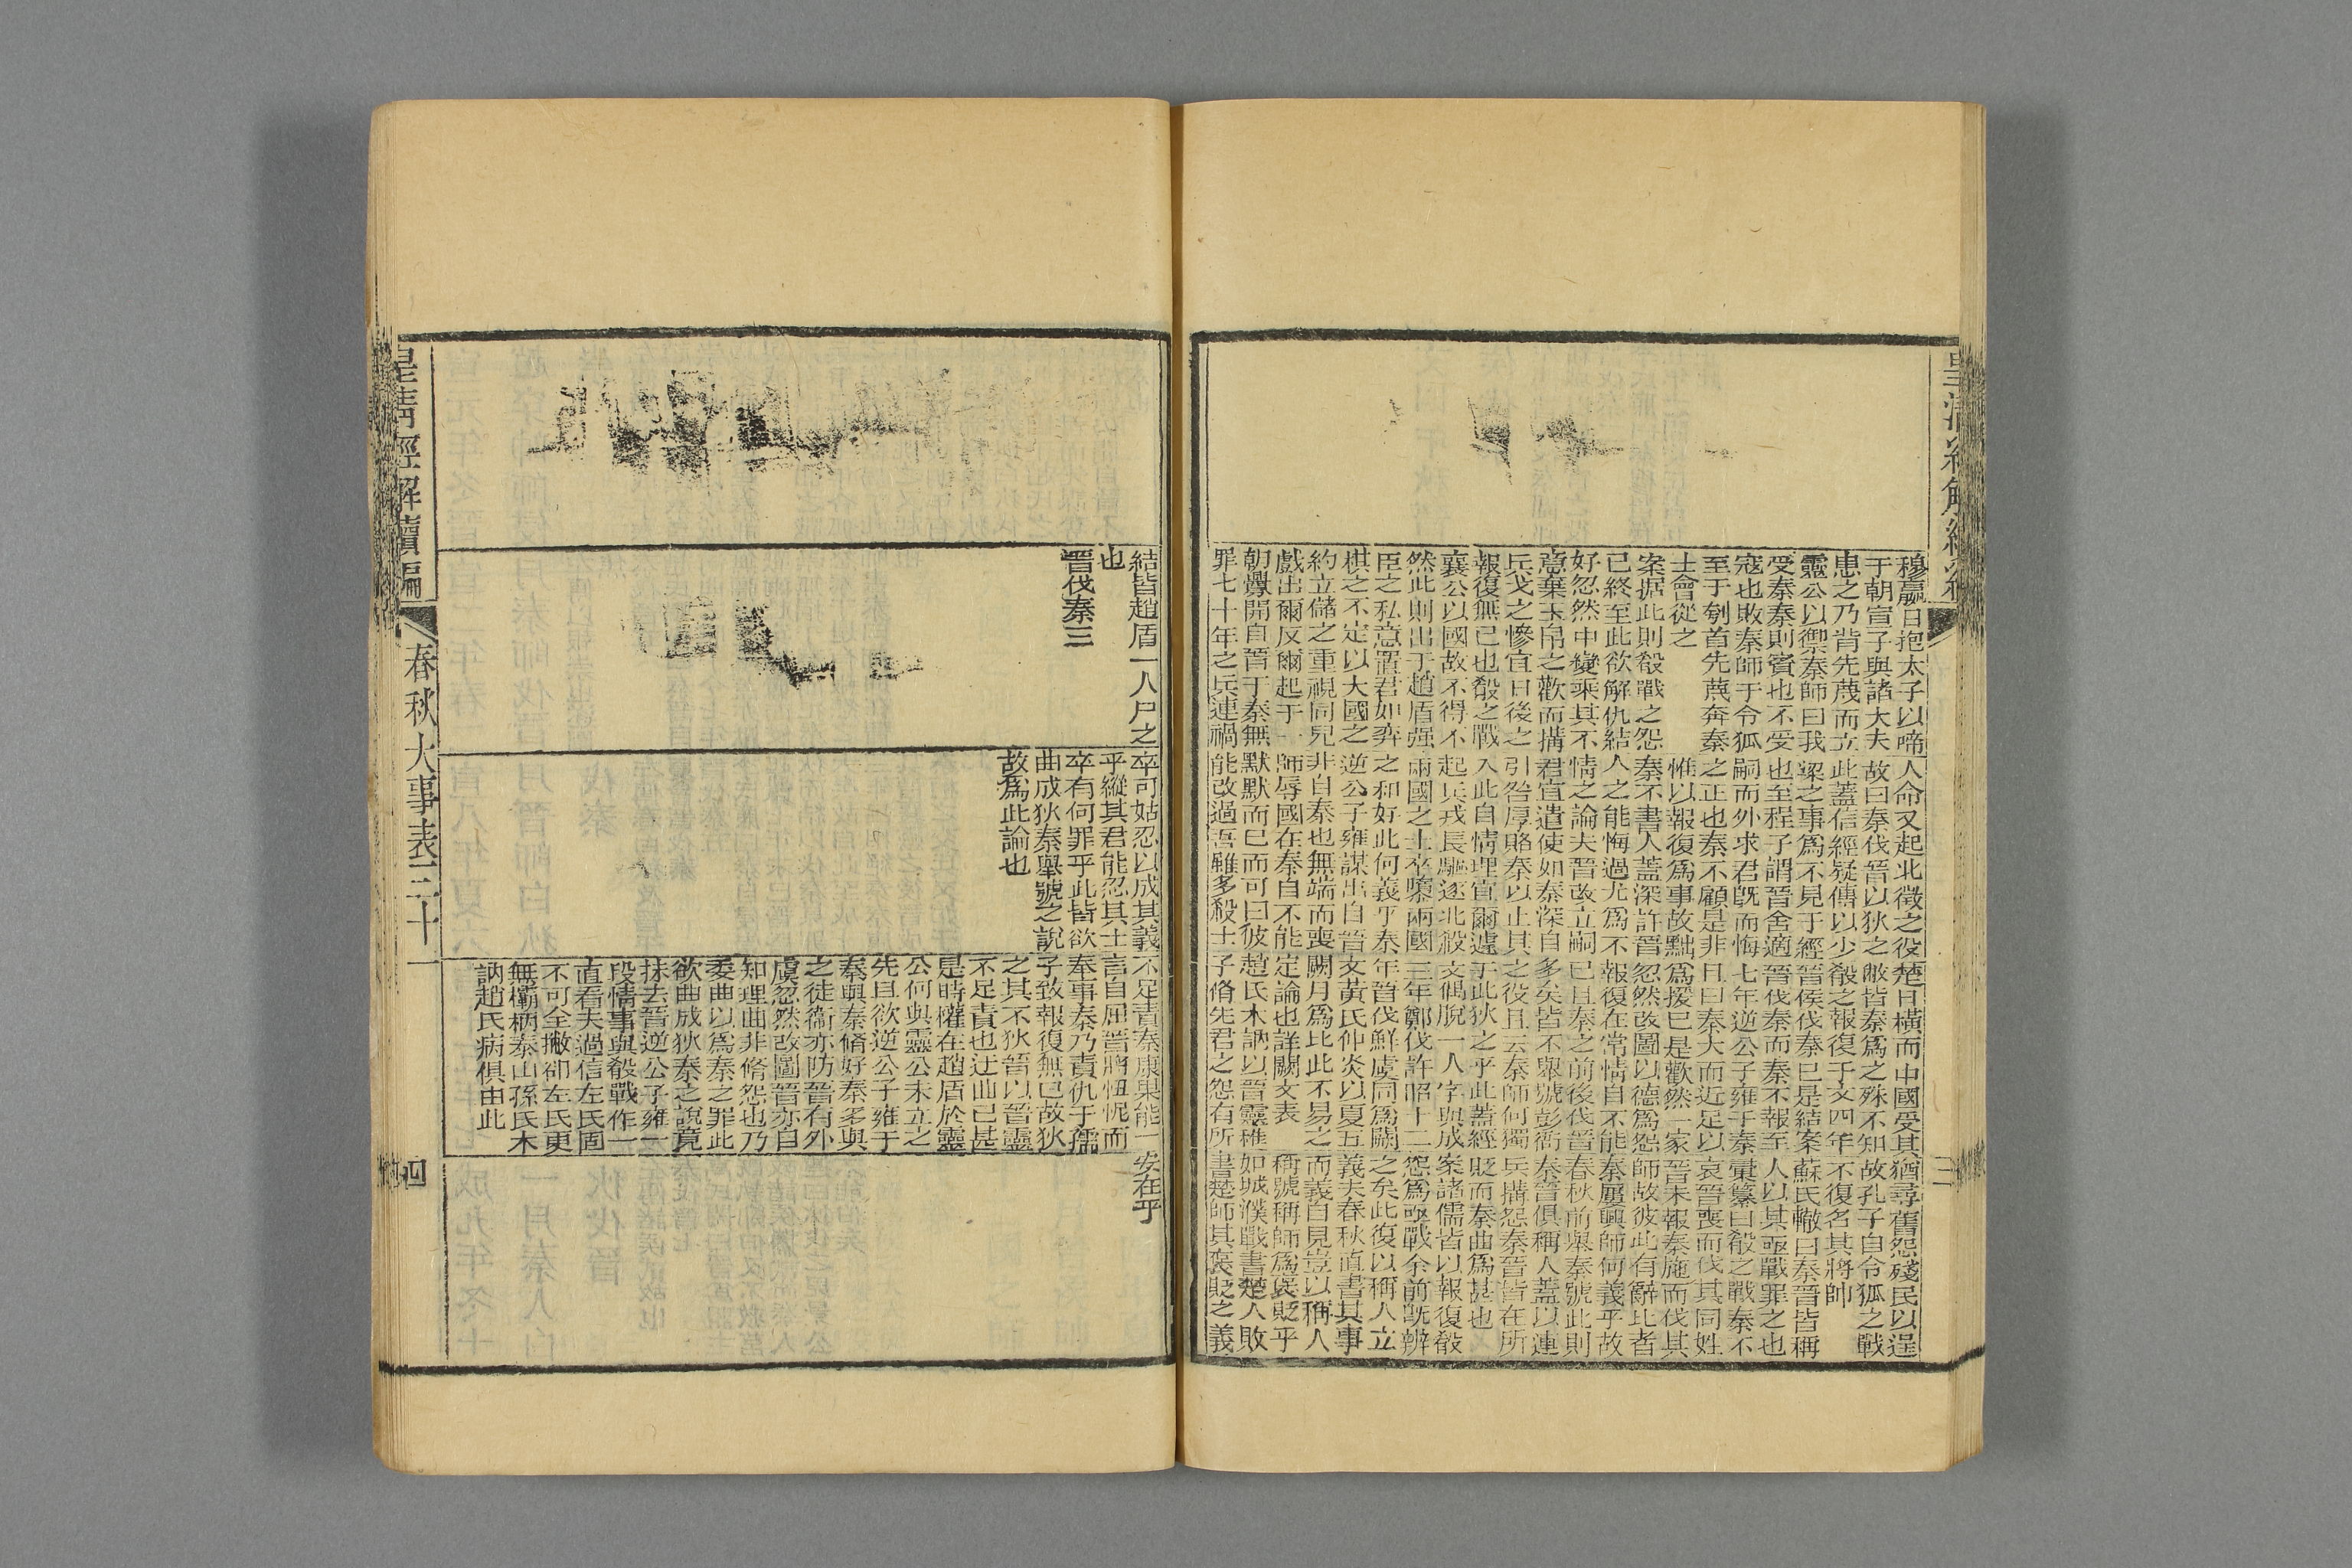 皇清經解續編
三
穆嬴日抱太子以啼
于朝宣子與諸大夫
患之乃背先蔑而立
靈公以禦秦師曰我
受秦秦則賓也不受
寇也敗秦師于令狐
至于刳首先蔑奔秦
士會從之
案据此則殽戰之怨
已終至此欲解仇結
好忽然中變乘其不
意棄玉帛之歡而搆
兵戈之慘宜日後之
報復無已也殽之戰
襄公以國故不得不
然此則出于趙盾强
臣之私意置君如弈
棋之不定以大國之
約立儲之重視同兒
戲出爾反爾起于一
朝釁開自晉于秦無
罪七十年之兵連禍
人命又起北徵之役
故曰秦伐晉以狄之
此蓋信經疑傳以少
梁之事爲不見于經
也至程子謂晉舍適
嗣而外求君旣而悔
之正也秦不顧是非
惟以報復爲事故黜
秦不書人蓋深許晉
人之能悔過尤爲不
情之論夫晉改立嗣
君宜遣使如秦深自
引咎厚賂秦以止其
入此自情理宜爾遽
起兵戎長驅逐北殺
兩國之士卒隳兩國
之和好此何義乎秦
逆公子雍謀出自晉
非自秦也無端而喪
師辱國在秦自不能
默默而已而可曰彼
能改過吾雖多殺士
楚日橫而中國受其
敝皆秦爲之殊不知
殽之報復于文四年
晉侯伐秦已是結案
晉伐秦而秦不報至
七年逆公子雍于秦
且曰秦大而近足以
爲援已是歡然一家
忽然改圖以德爲怨
報復在常情自不能
已且秦之前後伐晉
多矣皆不舉號彭衙
之役且云秦師何獨
于此狄之乎此蓋經
文偶脫一人字與成
三年鄭伐許昭十二
年晉伐鮮虞同爲闕
文黃氏仲炎以夏五
闕月爲比此不易之
定論也詳闕文表
趙氏木訥以晉靈稚
子脩先君之怨有所
猶尋舊怨殘民以逞
故孔子自令狐之戰
不復名其將帥
蘇氏轍曰秦晉皆稱
人以其亟戰罪之也
彙纂曰殽之戰秦不
哀晉喪而伐其同姓
晉未報秦施而伐其
師故彼此有辭比者
秦屢興師何義乎故
春秋前舉秦號此則
秦晉俱稱人蓋以連
兵搆怨秦晉皆在所
貶而秦曲爲甚也
案諸儒皆以報復殽
怨爲亟戰余前旣辨
之矣此復以稱人立
義夫春秋直書其事
而義自見豈以稱人
稱號稱師爲褒貶乎
如城濮戰書楚人敗
書楚師其褒貶之義
結皆趙盾一人尸之
也
晉伐秦三
卒可姑忍以成其義
乎縱其君能忍其士
卒有何罪乎此皆欲
曲成狄秦舉號之說
故爲此論也
不足責秦康果能一
言自屈晉將忸怩而
奉事秦乃責仇于孺
子致報復無已故狄
之其不狄晉以晉靈
不足責也迂曲已甚
是時權在趙盾於靈
公何與靈公未立之
先且欲逆公子雍于
秦與秦脩好秦多與
之徒衛亦防晉有外
虞忽然改圖晉亦自
知理曲非脩怨也乃
委曲以爲秦之罪此
欲曲成狄秦之說竟
抹去晉逆公子雍一
段情事與殽戰作一
直看夫過信左氏固
不可全撇卻左氏更
無欛柄泰山孫氏木
訥趙氏病俱由此
安在乎
皇清經解續編
春秋大事表三十一
四